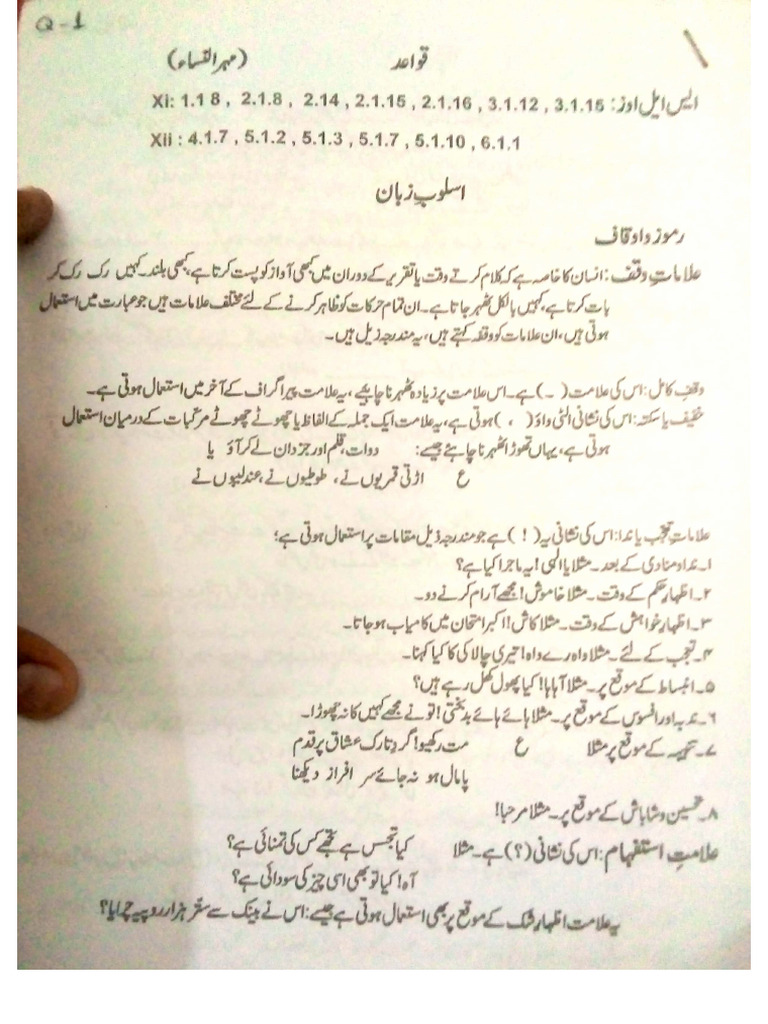 Q-1
قواعد (مہر النساء)
ایس ایل اوز: Xi: 1.1 8 , 2.1.8 , 2.14 , 2.1.15 , 2.1.16 , 3.1.12 , 3.1.15
Xii : 4.1.7 , 5.1.2 , 5.1.3 , 5.1.7 , 5.1.10 , 6.1.1
اسلوبِ زبان
رموز و اوقاف
علاماتِ وقف: انسان کا خاصہ ہے کہ کلام کرتے وقت یا تقریر کے دوران میں کبھی آواز کو پست کرتا ہے، کبھی بلند۔ کہیں رک رک کر
بات کرتا ہے، کہیں بالکل ٹھہر جاتا ہے۔ ان تمام حرکات کو ظاہر کرنے کے لئے مختلف علامات ہیں جو عبارت میں استعمال
ہوتی ہیں، ان علامات کو وقفہ کہتے ہیں، یہ مندرجہ زیل ہیں۔
وقفِ کامل: اس کی علامت (۔) ہے۔ اس علامت پر زیادہ ٹھہرنا چاہیے، یہ علامت پیراگراف کے آخر میں استعمال ہوتی ہے۔
خفیف یا سکتہ: اس کی نشانی الٹی واؤ( ، ) ہوتی ہے، یہ علامت ایک جملہ کے الفاظ یا چھوٹے چھوٹے مرکبات کے درمیان استعمال
ہوتی ہے، یہاں تھوڑا ٹھہرنا چاہئے جیسے: دوات، قلم اور جزدان لے کر آؤ یا
ع اڑتی قمریوں نے، طوطیوں نے، عندلیبوں نے
علاماتِ تعجب یا ندا: اس کی نشانی یہ( ! ) ہے جو مندرجہ ذیل مقامات پر استعمال ہوتی ہے؛
۱۔ ندا و منادی کے بعد۔ مثلا یا الٰہی! یہ ماجرا کیا ہے؟
۲۔ اظہارِ حکم کے وقت۔ مثلا خاموش! مجھے آرام کرنے دو۔
۳۔ اظہارِ خواہش کے وقت۔ مثلا کاش! اکبر امتحان میں کامیاب ہو جاتا۔
۴۔ تعجب کے لئے۔ مثلا واہ رے واہ! تیری چالاکی کا کیا کہنا۔
۵۔ انبساط کے موقع پر۔ مثلا آہاہا! کیا پھول کھل رہے ہیں؟
۶۔ ندبہ اور افسوس کے موقع پر۔ مثلا ہائے ہائے بدبختی! تو نے مجھے کہیں کا نہ چھوڑا۔
۷۔ تنبیہ کے موقع پر مثلا ع مت رکھیو! گردِ تارکِ عشاق پر قدم
پامال ہو نہ جائے سر افراز دیکھنا
۸۔ تحسین و شاباش کے موقع پر۔ مثلا مرحبا!
علامتِ استفہام: اس کی نشانی (؟) ہے۔ مثلا کیا تجسس ہے تجھے کس کی تمنائی ہے؟
آہ! کیا تو بھی اسی چیز کی سودائی ہے؟
یہ علامت اظہارِ شک کے موقع پر بھی استعمال ہوتی ہے جیسے: اس نے بینک سے ستّر ہزار روپیہ چرایا؟